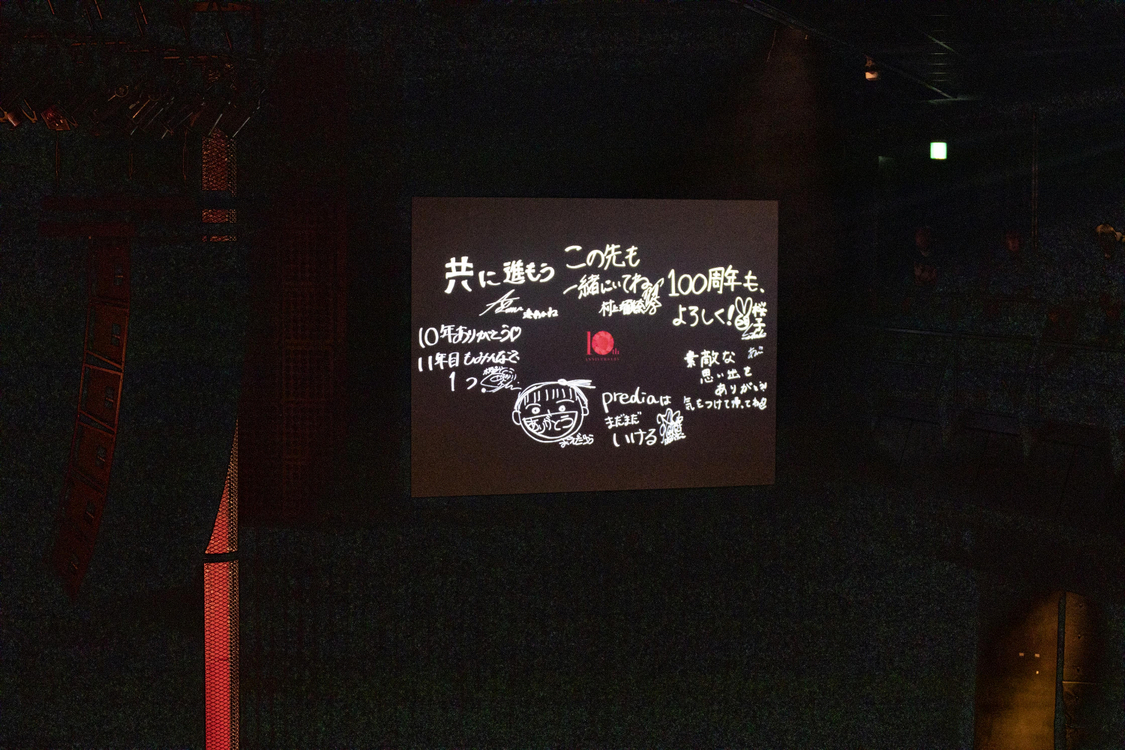 共に進もう
この先も
一緒にいてね
村上瑠美奈
100周年も、
よろしく!
桜子
10年ありがとう♡
11年目もみんなで
1つ
10th
ANNIVERSARY
素敵な
思い出を
ありがとう
気をつけて帰ってね
ありがとう
prediaは
まだまだ
いける